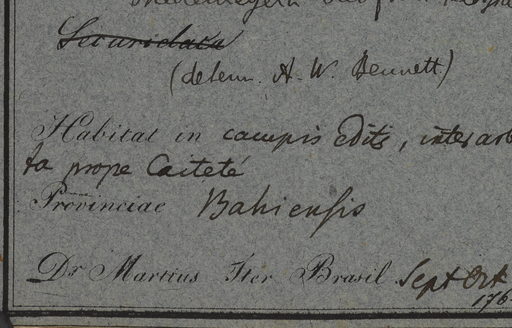 Securidaca
(determ. A. W. Bennett.)
Habitat in campis editis, inter arb
ta prope Caiteté
Provinciae Bahiensis
Dr Martius Iter Brasil. Sept Oct